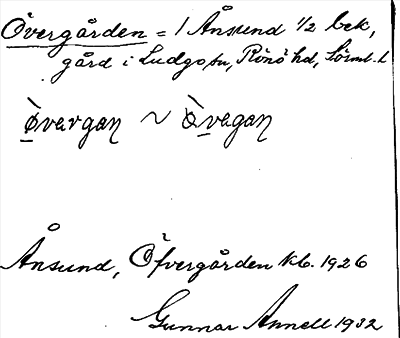 Övergården = 1 Ånsund ½ bek,
gård i Ludgo sn, Rönö hd, Sörml. l
Ånsund, Öfvergården Kb. 1926
Gunnar Annell 1932